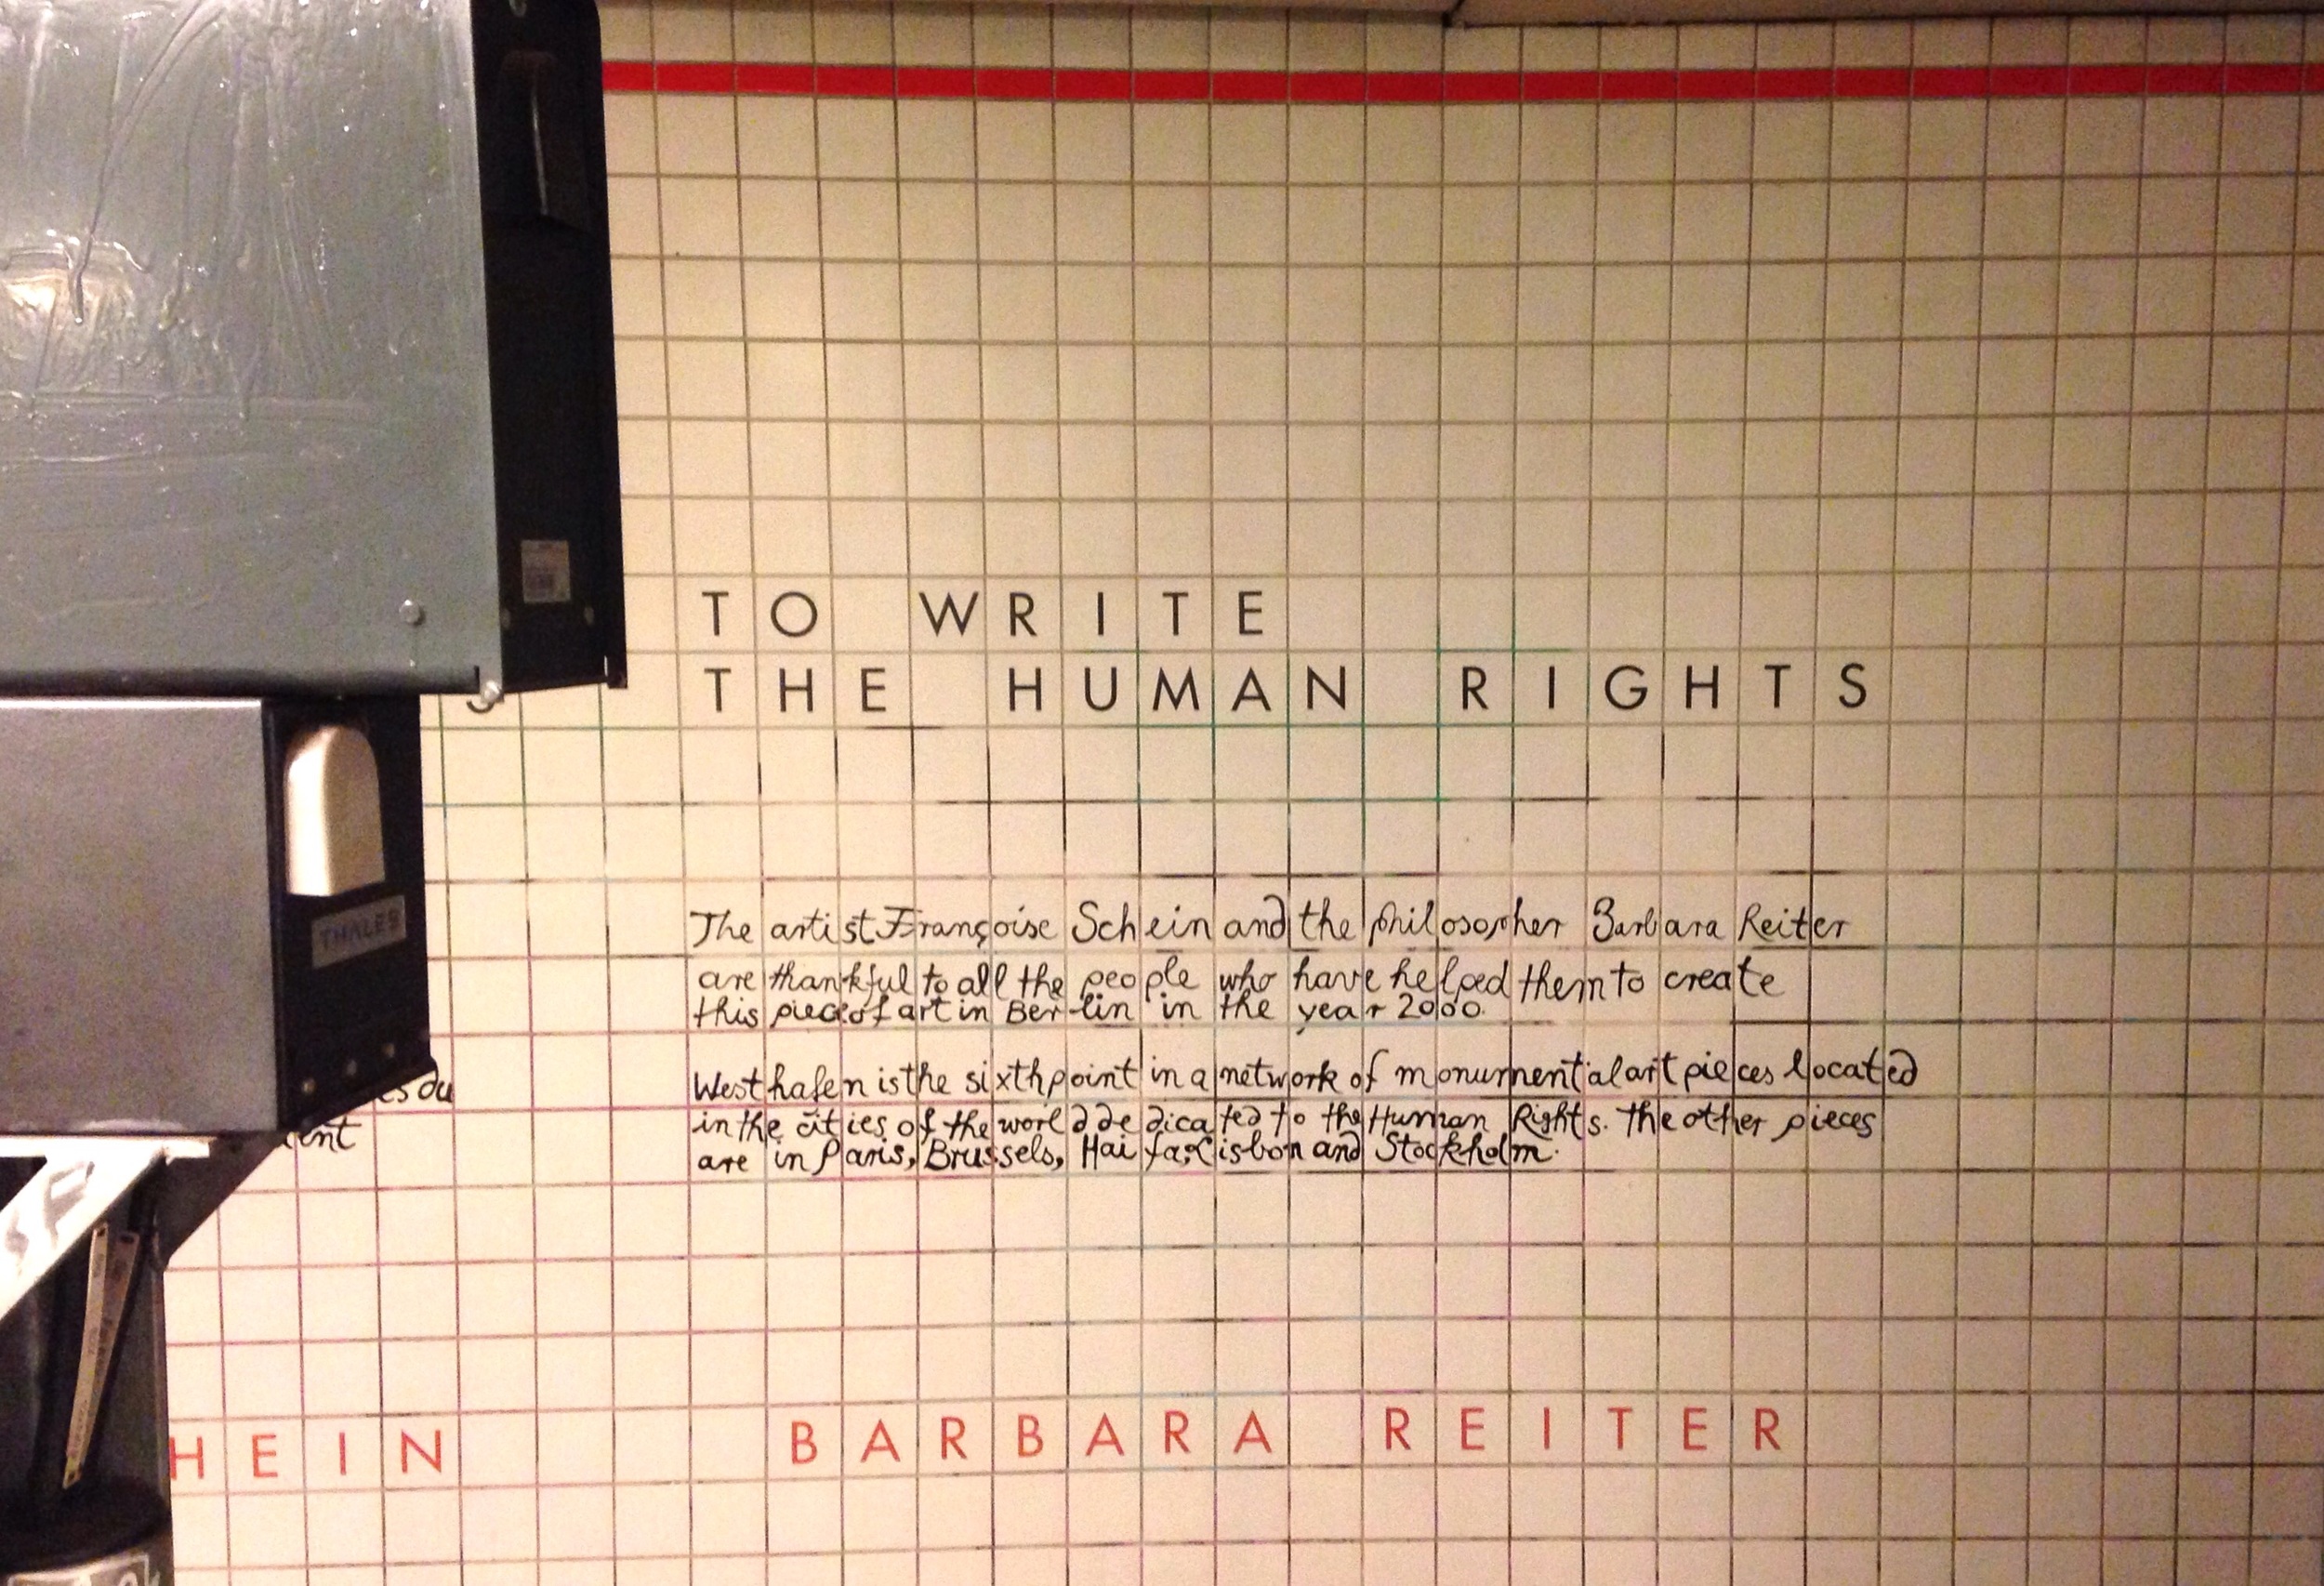 TO WRITE
THE HUMAN RIGHTS
The artist Françoise Schein and the philosopher Barbara Reiter
are thankful to all the people who have helped them to create
this piece of art in Berlin in the year 2000.
Westhafen is the sixth point in a network of monumental art pieces located
in the cities of the world dedicated to the Human Rights. the other pieces
are in Paris, Brussels, Haifa, Lisbon and Stockholm.
es du
ent
THALES
HEIN BARBARA REITER